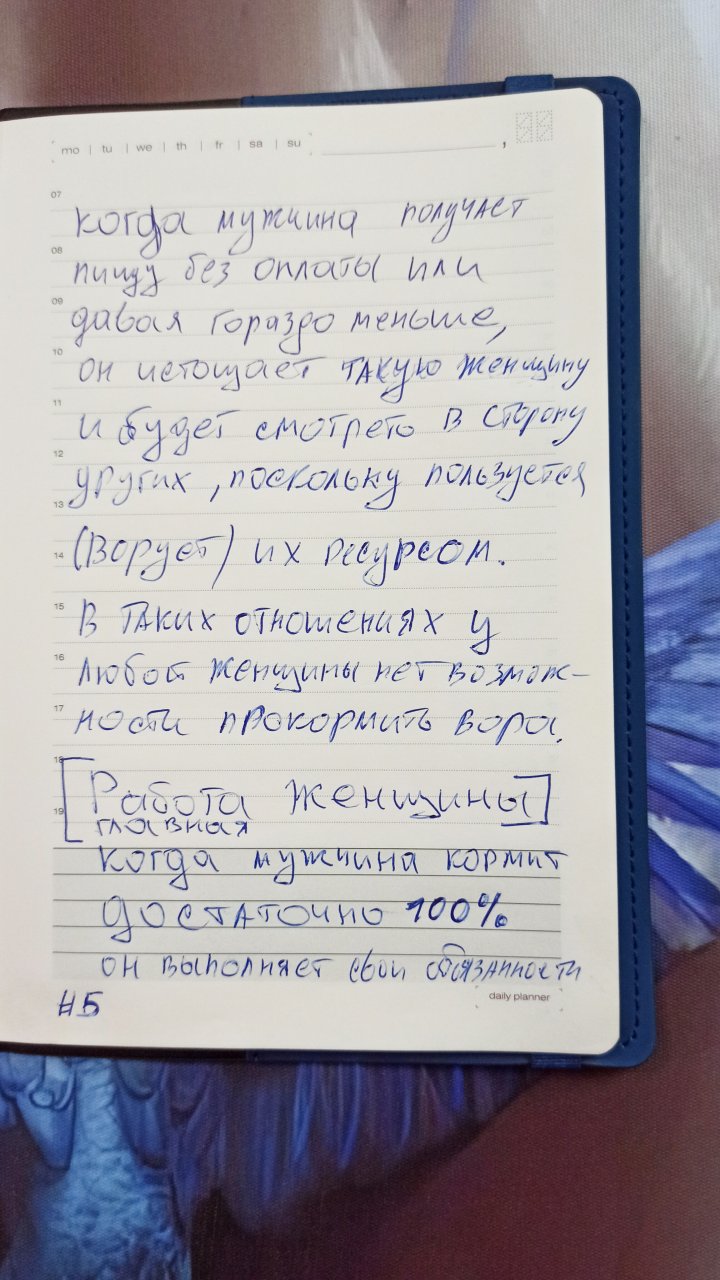 mo | tu | we | th | fr | sa | su ,
07
когда мужчина получает
08
пищу без оплаты или
09
давая гораздо меньше,
10
он истощает такую женщину
11
и будет смотреть в сторону
12
других, поскольку пользуется
13
14
(ворует) их ресурсом.
15
В таких отношениях у
16
любой женщины нет возмож-
17
ности прокормить вора.
18
19
[Работа женщины]
главная
когда мужчина кормит
достаточно 100%
он выполняет свои обязанности
daily planner
#5